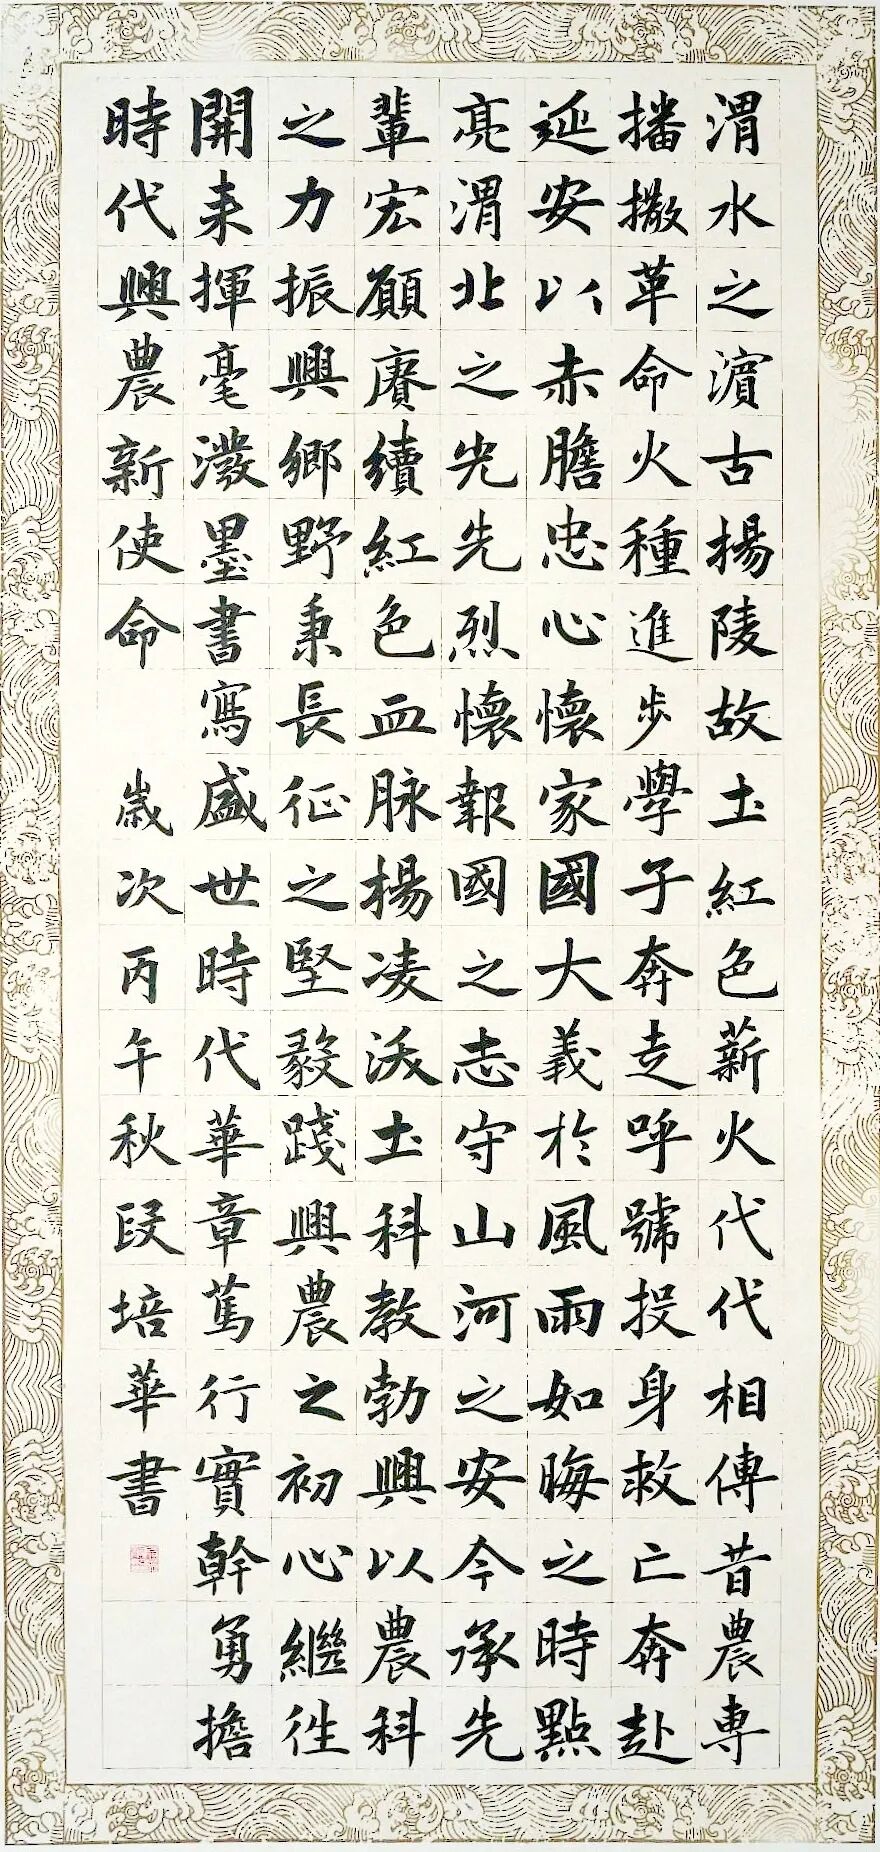 渭水之濵古揚陵故土紅色薪火代代相傳昔農專
播撒革命火種進步學子奔走呼號投身救亡奔赴
延安以赤膽忠心懷家國大義於風雨如晦之時點
亮渭北之光先烈懷報國之志守山河之安今承先
輩宏願賡續紅色血脉楊凌沃土科教勃興以農科
之力振興鄉野秉長征之堅毅踐興農之初心繼往
開来揮毫潑墨書寫盛世時代華章篤行實幹勇擔
時代興農新使命
歲次丙午秋段培華書